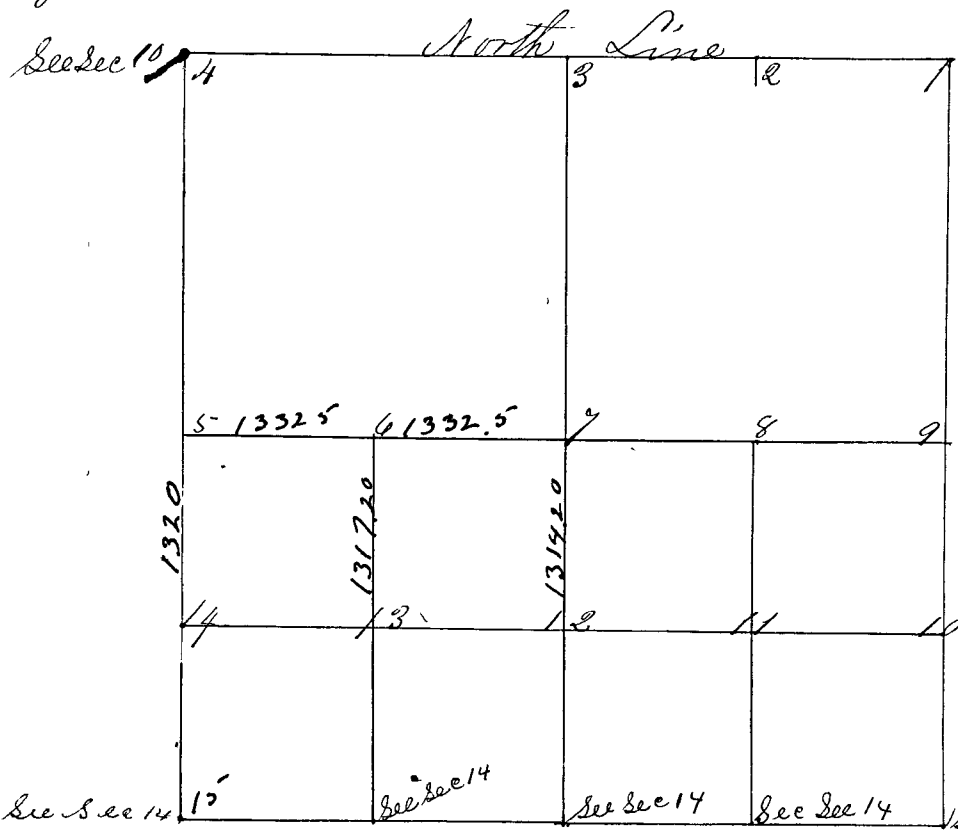 North Line
See Sec 10
4 3 2 1
5 1332 5 6 1332.5 7 8 9
1320 1317.20 1314.20
14 13 12 11 10
See Sec 14 15 See Sec 14 See Sec 14 See Sec 14